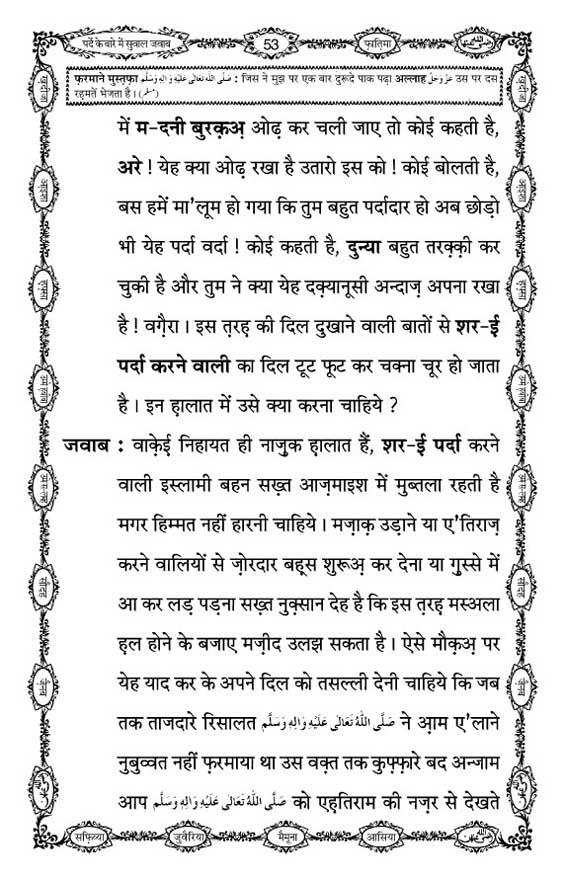 पर्दे के बारे में सुवाल जवाब
53
फ़ातिमा
फ़रमाने मुस्तफ़ा صَلَّى اللّٰهُ تَعَالٰى عَلَيْهِ وَاٰلِهٖ وَسَلَّم : जिस ने मुझ पर एक बार दुरूदे पाक पढ़ा अल्लाह عَزَّوَجَلَّ उस पर दस
रहमतें भेजता है। (مسلم)
में म-दनी बुरक़अ़ ओढ़ कर चली जाए तो कोई कहती है,
अरे ! येह क्या ओढ़ रखा है उतारो इस को ! कोई बोलती है,
बस हमें मा'लूम हो गया कि तुम बहुत पर्दादार हो अब छोड़ो
भी येह पर्दा वर्दा ! कोई कहती है, दुन्या बहुत तरक़्क़ी कर
चुकी है और तुम ने क्या येह दक़्यानूसी अन्दाज़ अपना रखा
है ! वग़ैरा। इस त़रह़ की दिल दुखाने वाली बातों से शर-ई
पर्दा करने वाली का दिल टूट फूट कर चक्ना चूर हो जाता
है। इन ह़ालात में उसे क्या करना चाहिये ?
जवाब : वाक़ेई निहायत ही नाज़ुक ह़ालात हैं, शर-ई पर्दा करने
वाली इस्लामी बहन सख़्त आज़माइश में मुब्तला रहती है
मगर हिम्मत नहीं हारनी चाहिये। मज़ाक़ उड़ाने या ए'तिराज़
करने वालियों से ज़ोरदार बह़्स शुरूअ़ कर देना या ग़ुस्से में
आ कर लड़ पड़ना सख़्त नुक़्सान देह है कि इस त़रह़ मस्अला
ह़ल होने के बजाए मज़ीद उलझ सकता है। ऐसे मौक़अ़ पर
येह याद कर के अपने दिल को तसल्ली देनी चाहिये कि जब
तक ताजदारे रिसालत صَلَّى اللّٰهُ تَعَالٰى عَلَيْهِ وَاٰلِهٖ وَسَلَّم ने आ़म ए'लाने
नुबुव्वत नहीं फ़रमाया था उस वक़्त तक कुफ़्फ़ारे बद अन्जाम
आप صَلَّى اللّٰهُ تَعَالٰى عَلَيْهِ وَاٰلِهٖ وَسَلَّم को एह़तिराम की नज़र से देखते
सफ़िय्या
जुवैरिया
मैमूना
आसिया